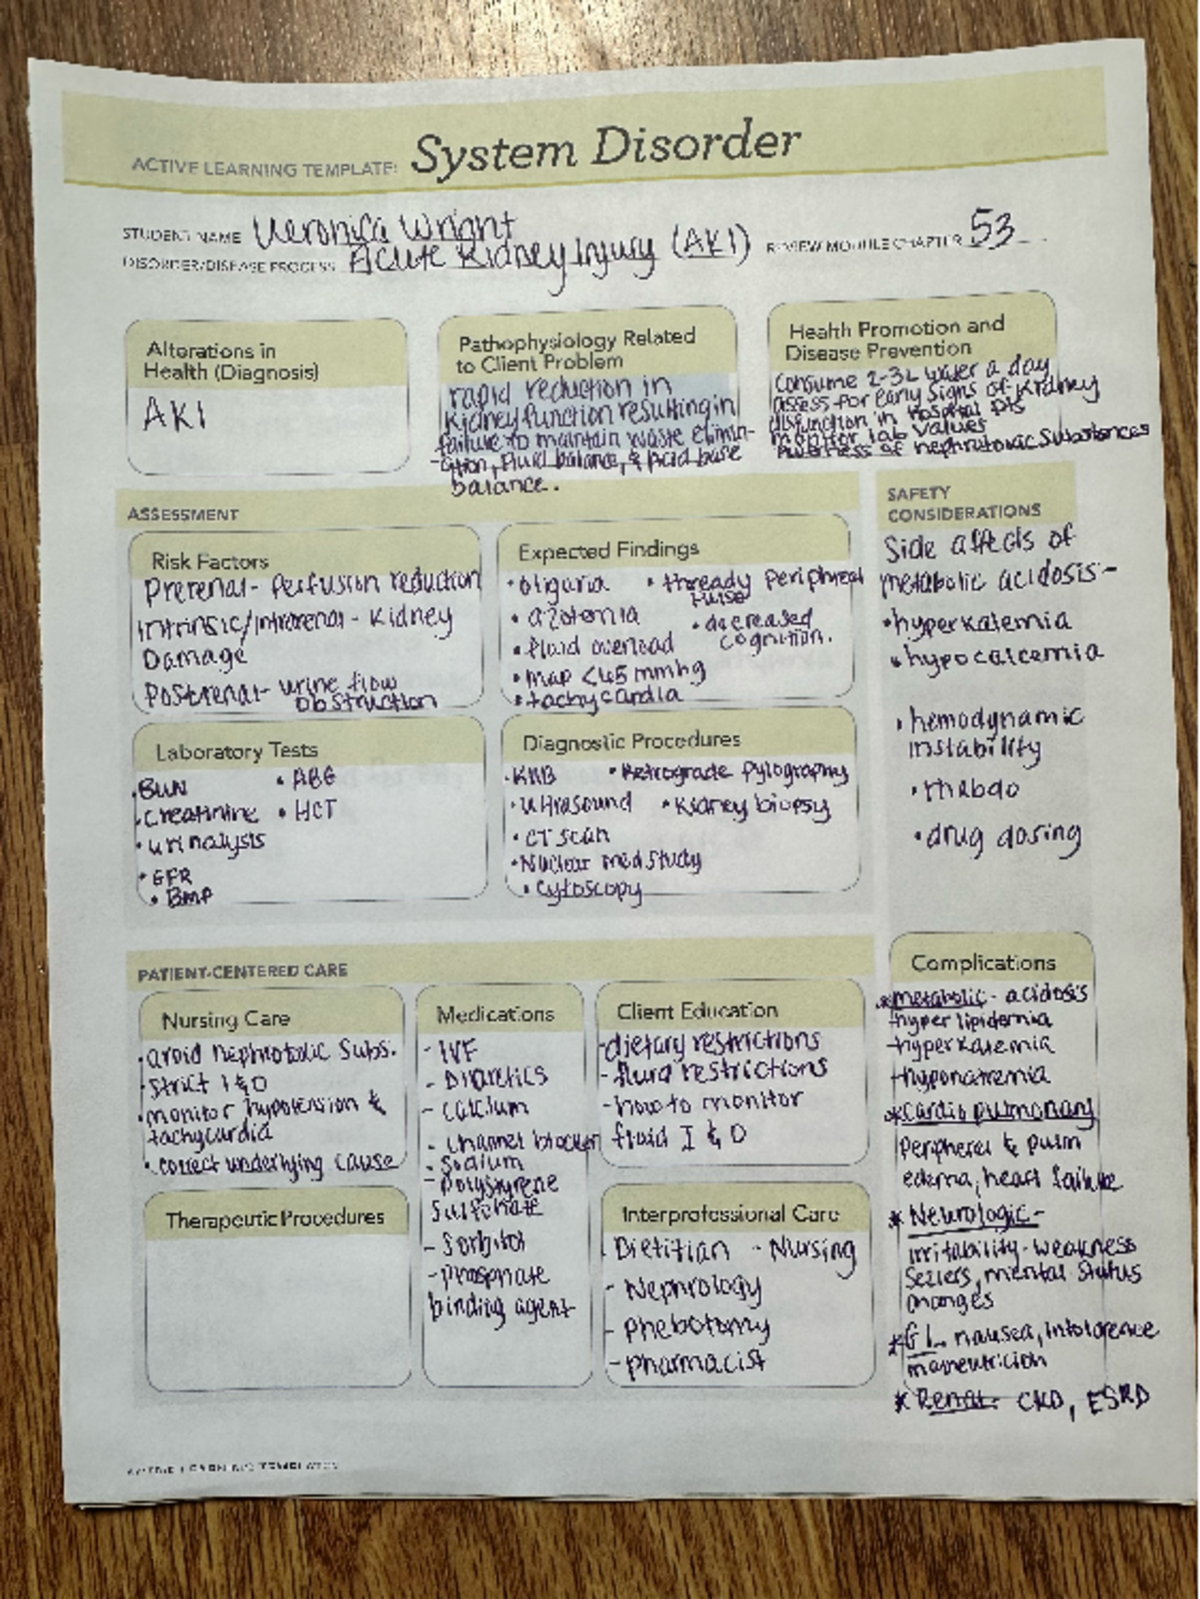 ACTIVE LEARNING TEMPLATE: System Disorder
STUDENT NAME Veronica Wright
DISORDER/DISEASE PROCESS Acute Kidney Injury (AKI) REVIEW MODULE CHAPTER 53
Alterations in
Health (Diagnosis)
AKI
Pathophysiology Related
to Client Problem
rapid reduction in
kidney function resulting in
failure to maintain waste elimin-
-ation, fluid balance, & acid base
balance.
Health Promotion and
Disease Prevention
Consume 2-3L water a day
assess for early signs of kidney
disfunction in hospital pts
monitor lab values
Awarness of nephrotoxic substances
ASSESSMENT
Risk Factors
Prerenal- Perfusion reduction
Intrinsic/Intrarenal- Kidney
Damage
Postrenal- urine flow
obstruction
Expected Findings
• oliguria
• azotemia
• fluid overload
• map <65 mmhg
• tachycardia
• thready peripheral
pulse
• decreased
cognition.
SAFETY
CONSIDERATIONS
Side affects of
metabolic acidosis-
• hyperkalemia
• hypocalcemia
• hemodynamic
instability
• rhabdo
• drug dosing
Laboratory Tests
• BUN
• creatinine
• urinalysis
• GFR
• BMP
• ABG
• HCT
Diagnostic Procedures
• KUB
• Ultrasound
• CT scan
• Nuclear med study
• Cytoscopy
• Retrograde pylography
• Kidney biopsy
PATIENT-CENTERED CARE
Nursing Care
• avoid nephrotoxic subs.
• strict I&O
• monitor hypotension &
tachycardia
• correct underlying cause
Medications
- IVF
- Diuretics
- calcium
- channel blocker
- sodium
- polystyrene
sulfonate
- Sorbitol
- phosphate
binding agent
Client Education
- dietary restrictions
- fluid restrictions
- how to monitor
fluid I & O
Therapeutic Procedures
Interprofessional Care
- Dietitian - Nursing
- Nephrology
- phebotomy
- pharmacist
Complications
* metabolic- acidosis
hyperlipidemia
hyperkalemia
hyponatremia
* cardiopulmonary
peripheral & pulm
edema, heart failure
* Neurologic-
irritability-weakness
mental status
changes
* GI- nausea,
* Renal: CKD, ESRD
ACTIVE LEARNING TEMPLATES